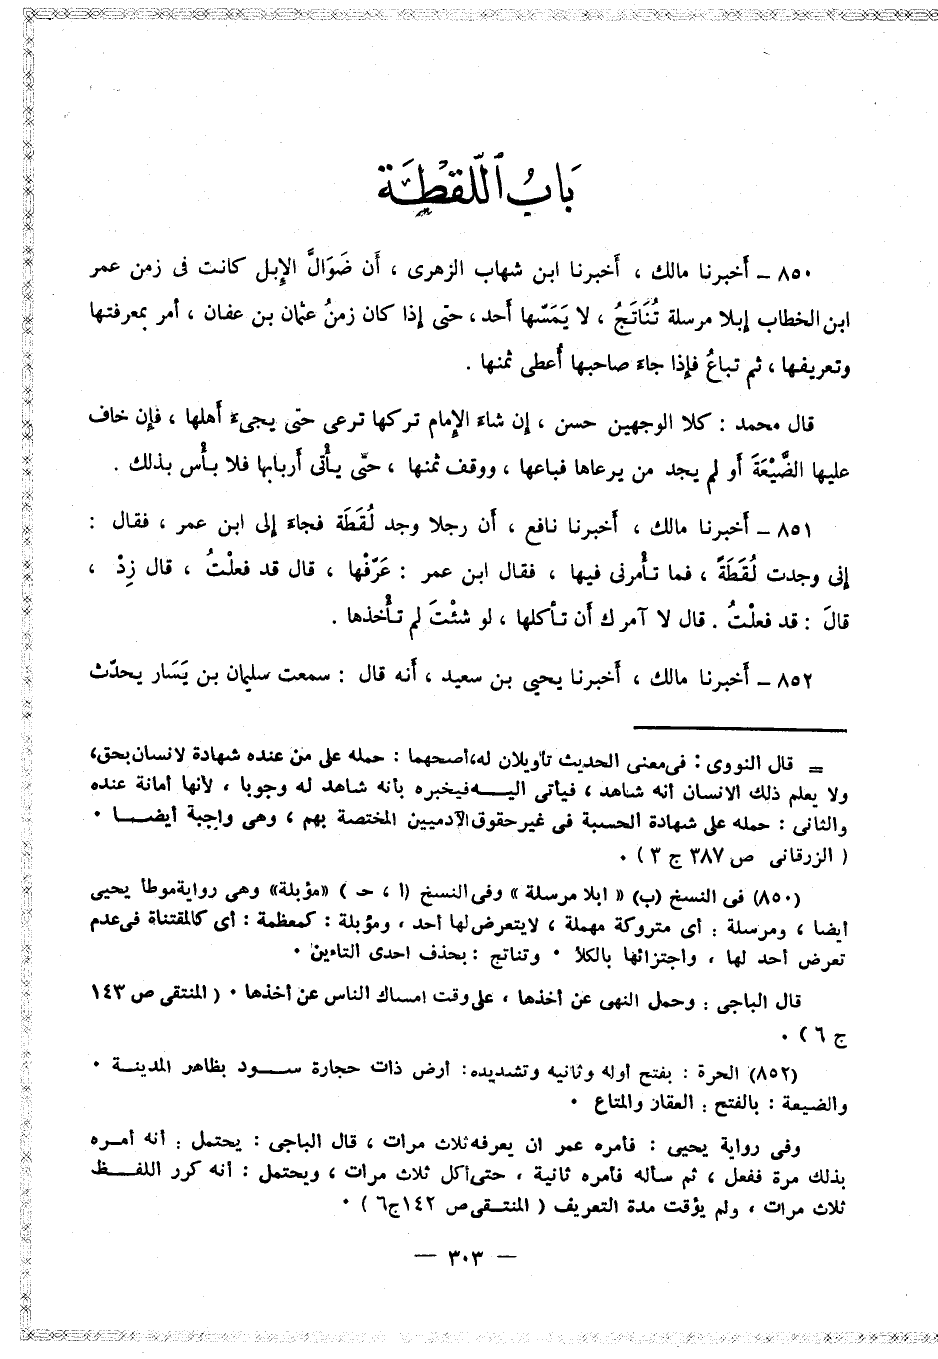 بَابُ ٱللُّقَطَة
٨٥٠ – أَخبرنا مالك ، أَخبرنا ابن شهاب الزهرى ، أَن ضَوَالَّ الإِبل كانت فى زمن عمر
ابن الخطاب إبلا مرسلة تُنَاتَجُ ، لا يَمَسّها أَحد ، حتى إذا كان زمنُ عثمان بن عفان ، أمر بمعرفتها
وتعريفها ، ثم تباعُ فإِذا جاءَ صاحبها أُعطى ثمنها .
قال محمد : كلا الوجهين حسن ، إن شاءَ الإِمام تركها ترعى حتى يجىءَ أَهلها ، فإِن خاف
عليها الضَّيْعَةَ أَو لم يجد من يرعاها فباعها ، ووقف ثمنها ، حتَّى يأْتى أَربابها فلا بأْس بذلك .
٨٥١ – أَخبرنا مالك ، أَخبرنا نافع ، أَن رجلا وجد لُقَطَة فجاءَ إلى ابن عمر ، فقال :
إنى وجدت لُقَطَةً ، فما تأْمرنى فيها ، فقال ابن عمر : عَرّفْها ، قال قد فعلْتُ ، قال زِدْ ،
قالَ : قد فعلْتُ . قال لا آمرك أَن تأكلها ، لو شئْتَ لم تأْخذها .
٨٥٢ – أَخبرنا مالك ، أَخبرنا يحيى بن سعيد ، أَنه قال : سمعت سليمان بن يَسَار يحدّث
= قال النووى : فى معنى الحديث تأويلان له، أصحهما : حمله على من عنده شهادة لانسان بحق،
ولا يعلم ذلك الانسان أنه شاهد ، فيأتى اليـــه فيخبره بأنه شاهد له وجوبا ، لأنها أمانة عنده
والثانى : حمله على شهادة الحسبة فى غير حقوق الآدميين المختصة بهم ، وهى واجبة أيضـــا ٠
( الزرقانى ص ٣٨٧ ج ٣ ) ٠
(٨٥٠) فى النسخ (ب) « ابلا مرسلة » وفى النسخ ( ا ، حـ ) «مؤبلة» وهى رواية موطأ يحيى
أيضا ، ومرسلة : أى متروكة مهملة ، لايتعرض لها أحد ، ومؤبلة : كمعظمة : أى كالمقتناة فى عدم
تعرض أحد لها ، واجتزائها بالكلأ ٠ وتناتج : بحذف احدى التاءين ٠
قال الباجى : وحمل النهى عن أخذها ، على وقت امساك الناس عن أخذها ٠ ( المنتقى ص ١٤٣
ج ٦ ) ٠
(٨٥٢) الحرة : بفتح أوله وثانيه وتشديده : أرض ذات حجارة ســـود بظاهر المدينـــة ٠
والضيعة : بالفتح : العقار والمتاع ٠
وفى رواية يحيى : فأمره عمر ان يعرفه ثلاث مرات ، قال الباجى : يحتمل : أنه أمـره
بذلك مرة ففعل ، ثم سأله فأمره ثانية ، حتى أكل ثلاث مرات ، ويحتمل : أنه كرر اللفـــظ
ثلاث مرات ، ولم يؤقت مدة التعريف ( المنتـقى ص ١٤٢ ج٦ ) ٠
— ٣٠٣ —